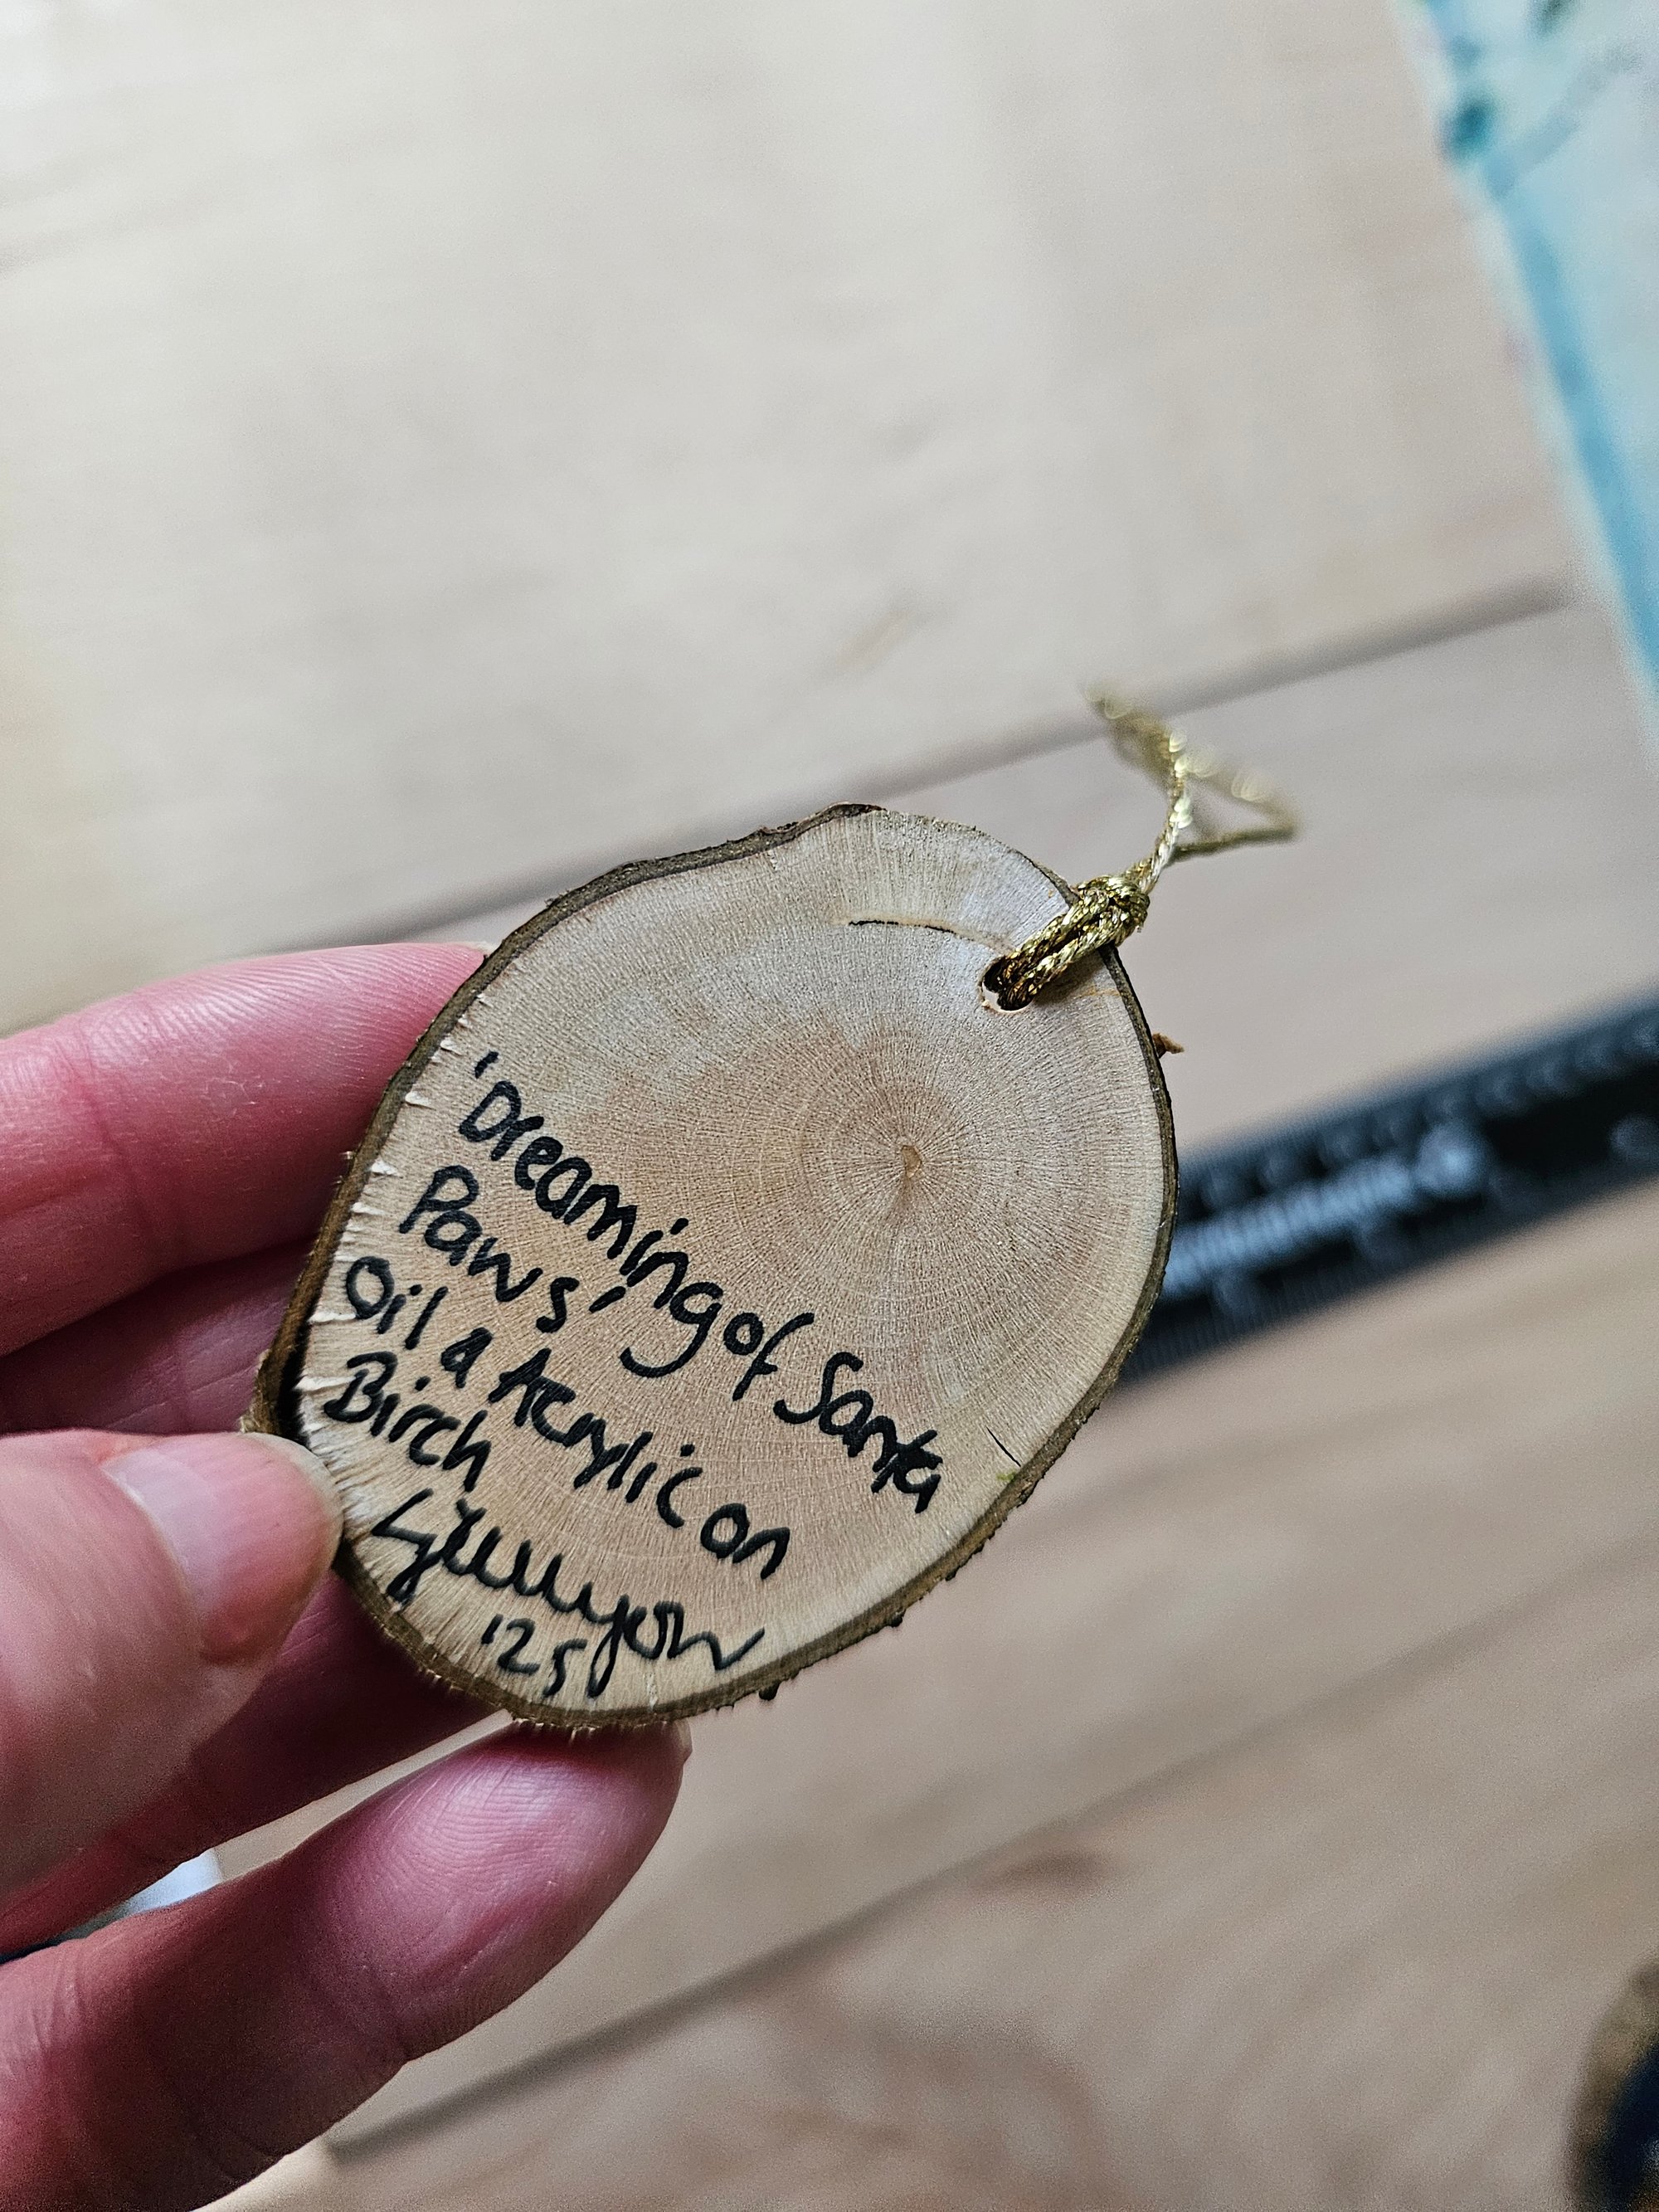 'Dreaming of Santa
Paws'
Oil & Acrylic on
Birch
'25